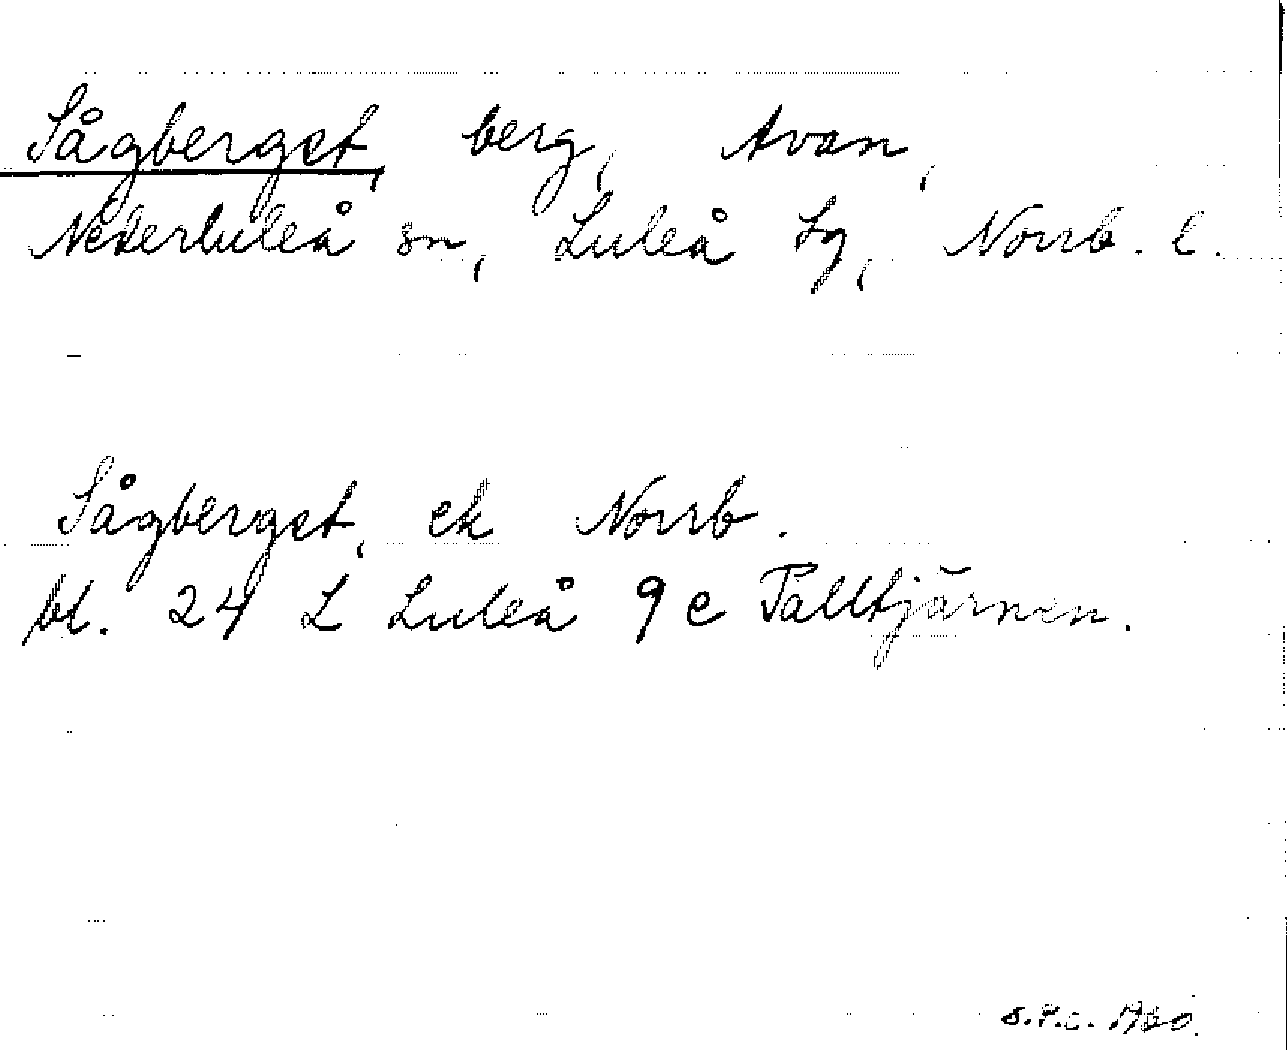 Sågberget, berg, Avan,
Nederluleå sn, Luleå tg, Norrb. l.
Sågberget, ek Norrb.
bl. 24 L Luleå 9 c Talltjärnen.